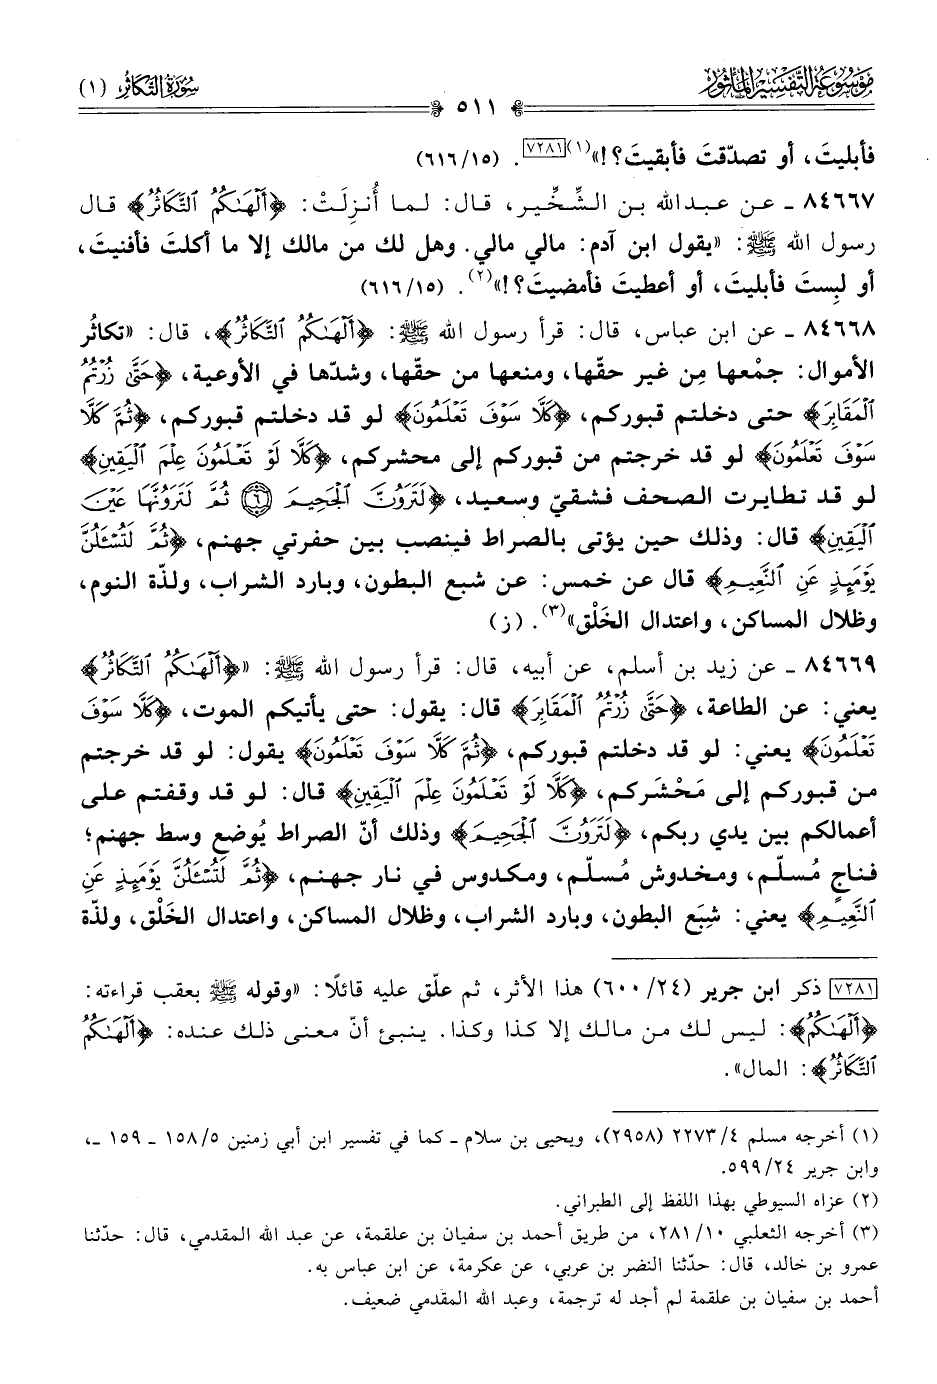 موسوعة التفسير المأثور
سورة التكاثر (١)
٥١١
فأبليتَ، أو تصدّقتَ فأبقيتَ؟!»(١)[٧٢٨١]. (١٥/٦١٦)
٨٤٦٦٧ ـ عن عبدالله بن الشِّخِّير، قال: لما أُنزِلَتْ: ﴿أَلْهَىٰكُمُ ٱلتَّكَاثُرُ﴾ قال
رسول الله ﷺ: «يقول ابن آدم: مالي مالي. وهل لك من مالك إلا ما أكلتَ فأفنيتَ،
أو لبِستَ فأبليتَ، أو أعطيتَ فأمضيتَ؟!»(٢). (١٥/٦١٦)
٨٤٦٦٨ ـ عن ابن عباس، قال: قرأ رسول الله ﷺ: ﴿أَلْهَىٰكُمُ ٱلتَّكَاثُرُ﴾، قال: «تكاثُر
الأموال: جمْعها مِن غير حقّها، ومنعها من حقّها، وشدّها في الأوعية، ﴿حَتَّىٰ زُرْتُمُ
ٱلْمَقَابِرَ﴾ حتى دخلتم قبوركم، ﴿كَلَّا سَوْفَ تَعْلَمُونَ﴾ لو قد دخلتم قبوركم، ﴿ثُمَّ كَلَّا
سَوْفَ تَعْلَمُونَ﴾ لو قد خرجتم من قبوركم إلى محشركم، ﴿كَلَّا لَوْ تَعْلَمُونَ عِلْمَ ٱلْيَقِينِ﴾
لو قد تطايرت الصحف فشقيّ وسعيد، ﴿لَتَرَوُنَّ ٱلْجَحِيمَ ۝٦ ثُمَّ لَتَرَوُنَّهَا عَيْنَ
ٱلْيَقِينِ﴾ قال: وذلك حين يؤتى بالصراط فينصب بين حفرتي جهنم، ﴿ثُمَّ لَتُسْـَٔلُنَّ
يَوْمَئِذٍ عَنِ ٱلنَّعِيمِ﴾ قال عن خمس: عن شبع البطون، وبارد الشراب، ولذّة النوم،
وظلال المساكن، واعتدال الخَلْق»(٣). (ز)
٨٤٦٦٩ ـ عن زيد بن أسلم، عن أبيه، قال: قرأ رسول الله ﷺ: «﴿أَلْهَىٰكُمُ ٱلتَّكَاثُرُ﴾
يعني: عن الطاعة، ﴿حَتَّىٰ زُرْتُمُ ٱلْمَقَابِرَ﴾ قال: يقول: حتى يأتيكم الموت، ﴿كَلَّا سَوْفَ
تَعْلَمُونَ﴾ يعني: لو قد دخلتم قبوركم، ﴿ثُمَّ كَلَّا سَوْفَ تَعْلَمُونَ﴾ يقول: لو قد خرجتم
من قبوركم إلى مَحْشَركم، ﴿كَلَّا لَوْ تَعْلَمُونَ عِلْمَ ٱلْيَقِينِ﴾ قال: لو قد وقفتم على
أعمالكم بين يدي ربكم، ﴿لَتَرَوُنَّ ٱلْجَحِيمَ﴾ وذلك أنّ الصراط يُوضع وسط جهنم؛
فناجٍ مُسلّم، ومخدوش مُسلّم، ومكدوس في نار جهنم، ﴿ثُمَّ لَتُسْـَٔلُنَّ يَوْمَئِذٍ عَنِ
ٱلنَّعِيمِ﴾ يعني: شِبَع البطون، وبارد الشراب، وظلال المساكن، واعتدال الخَلْق، ولذّة
[٧٢٨١] ذكر ابن جرير (٢٤/٦٠٠) هذا الأثر، ثم علّق عليه قائلًا: «وقوله ﷺ بعقب قراءته:
﴿أَلْهَىٰكُمُ﴾: ليس لك من مالك إلا كذا وكذا. ينبئ أنّ معنى ذلك عنده: ﴿أَلْهَىٰكُمُ
ٱلتَّكَاثُرُ﴾: المال».
(١) أخرجه مسلم ٤/٢٢٧٣ (٢٩٥٨)، ويحيى بن سلام ـ كما في تفسير ابن أبي زمنين ٥/١٥٨ ـ ١٥٩ ـ،
وابن جرير ٢٤/٥٩٩.
(٢) عزاه السيوطي بهذا اللفظ إلى الطبراني.
(٣) أخرجه الثعلبي ١٠/٢٨١، من طريق أحمد بن سفيان بن علقمة، عن عبد الله المقدمي، قال: حدّثنا
عمرو بن خالد، قال: حدّثنا النضر بن عربي، عن عكرمة، عن ابن عباس به.
أحمد بن سفيان بن علقمة لم أجد له ترجمة، وعبد الله المقدمي ضعيف.